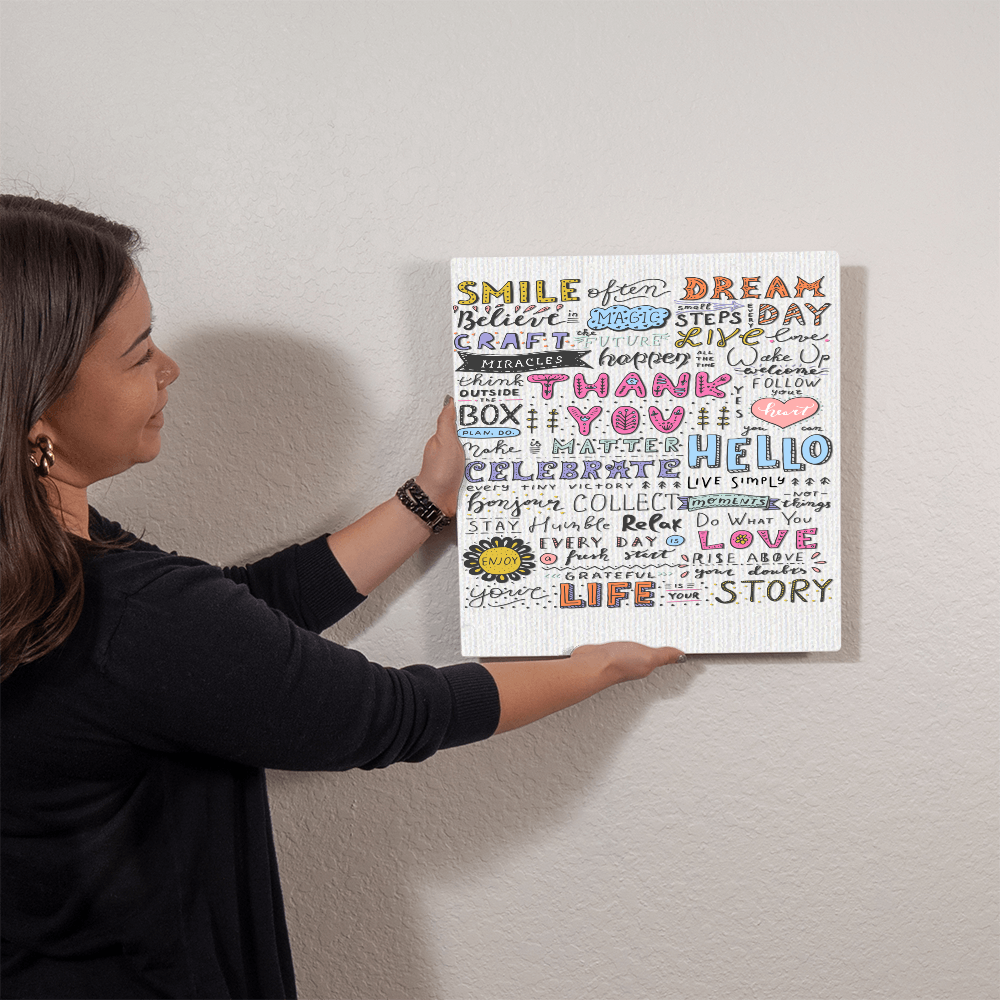 SMILE often DREAM
Believe in MAGIC small STEPS EVERY DAY
CRAFT the FUTURE LIVE love
MIRACLES happen ALL THE TIME Wake Up welcome
think OUTSIDE THE BOX THANK YOU YES FOLLOW your heart
PLAN. DO. you can
Make is MATTER HELLO
CELEBRATE LIVE SIMPLY
every TINY VICTORY
bonjour COLLECT MOMENTS NOT things
STAY Humble Relax DO WHAT YOU
ENJOY EVERY DAY is LOVE
a fresh start RISE ABOVE
GRATEFUL your doubts
your LIFE IS YOUR STORY